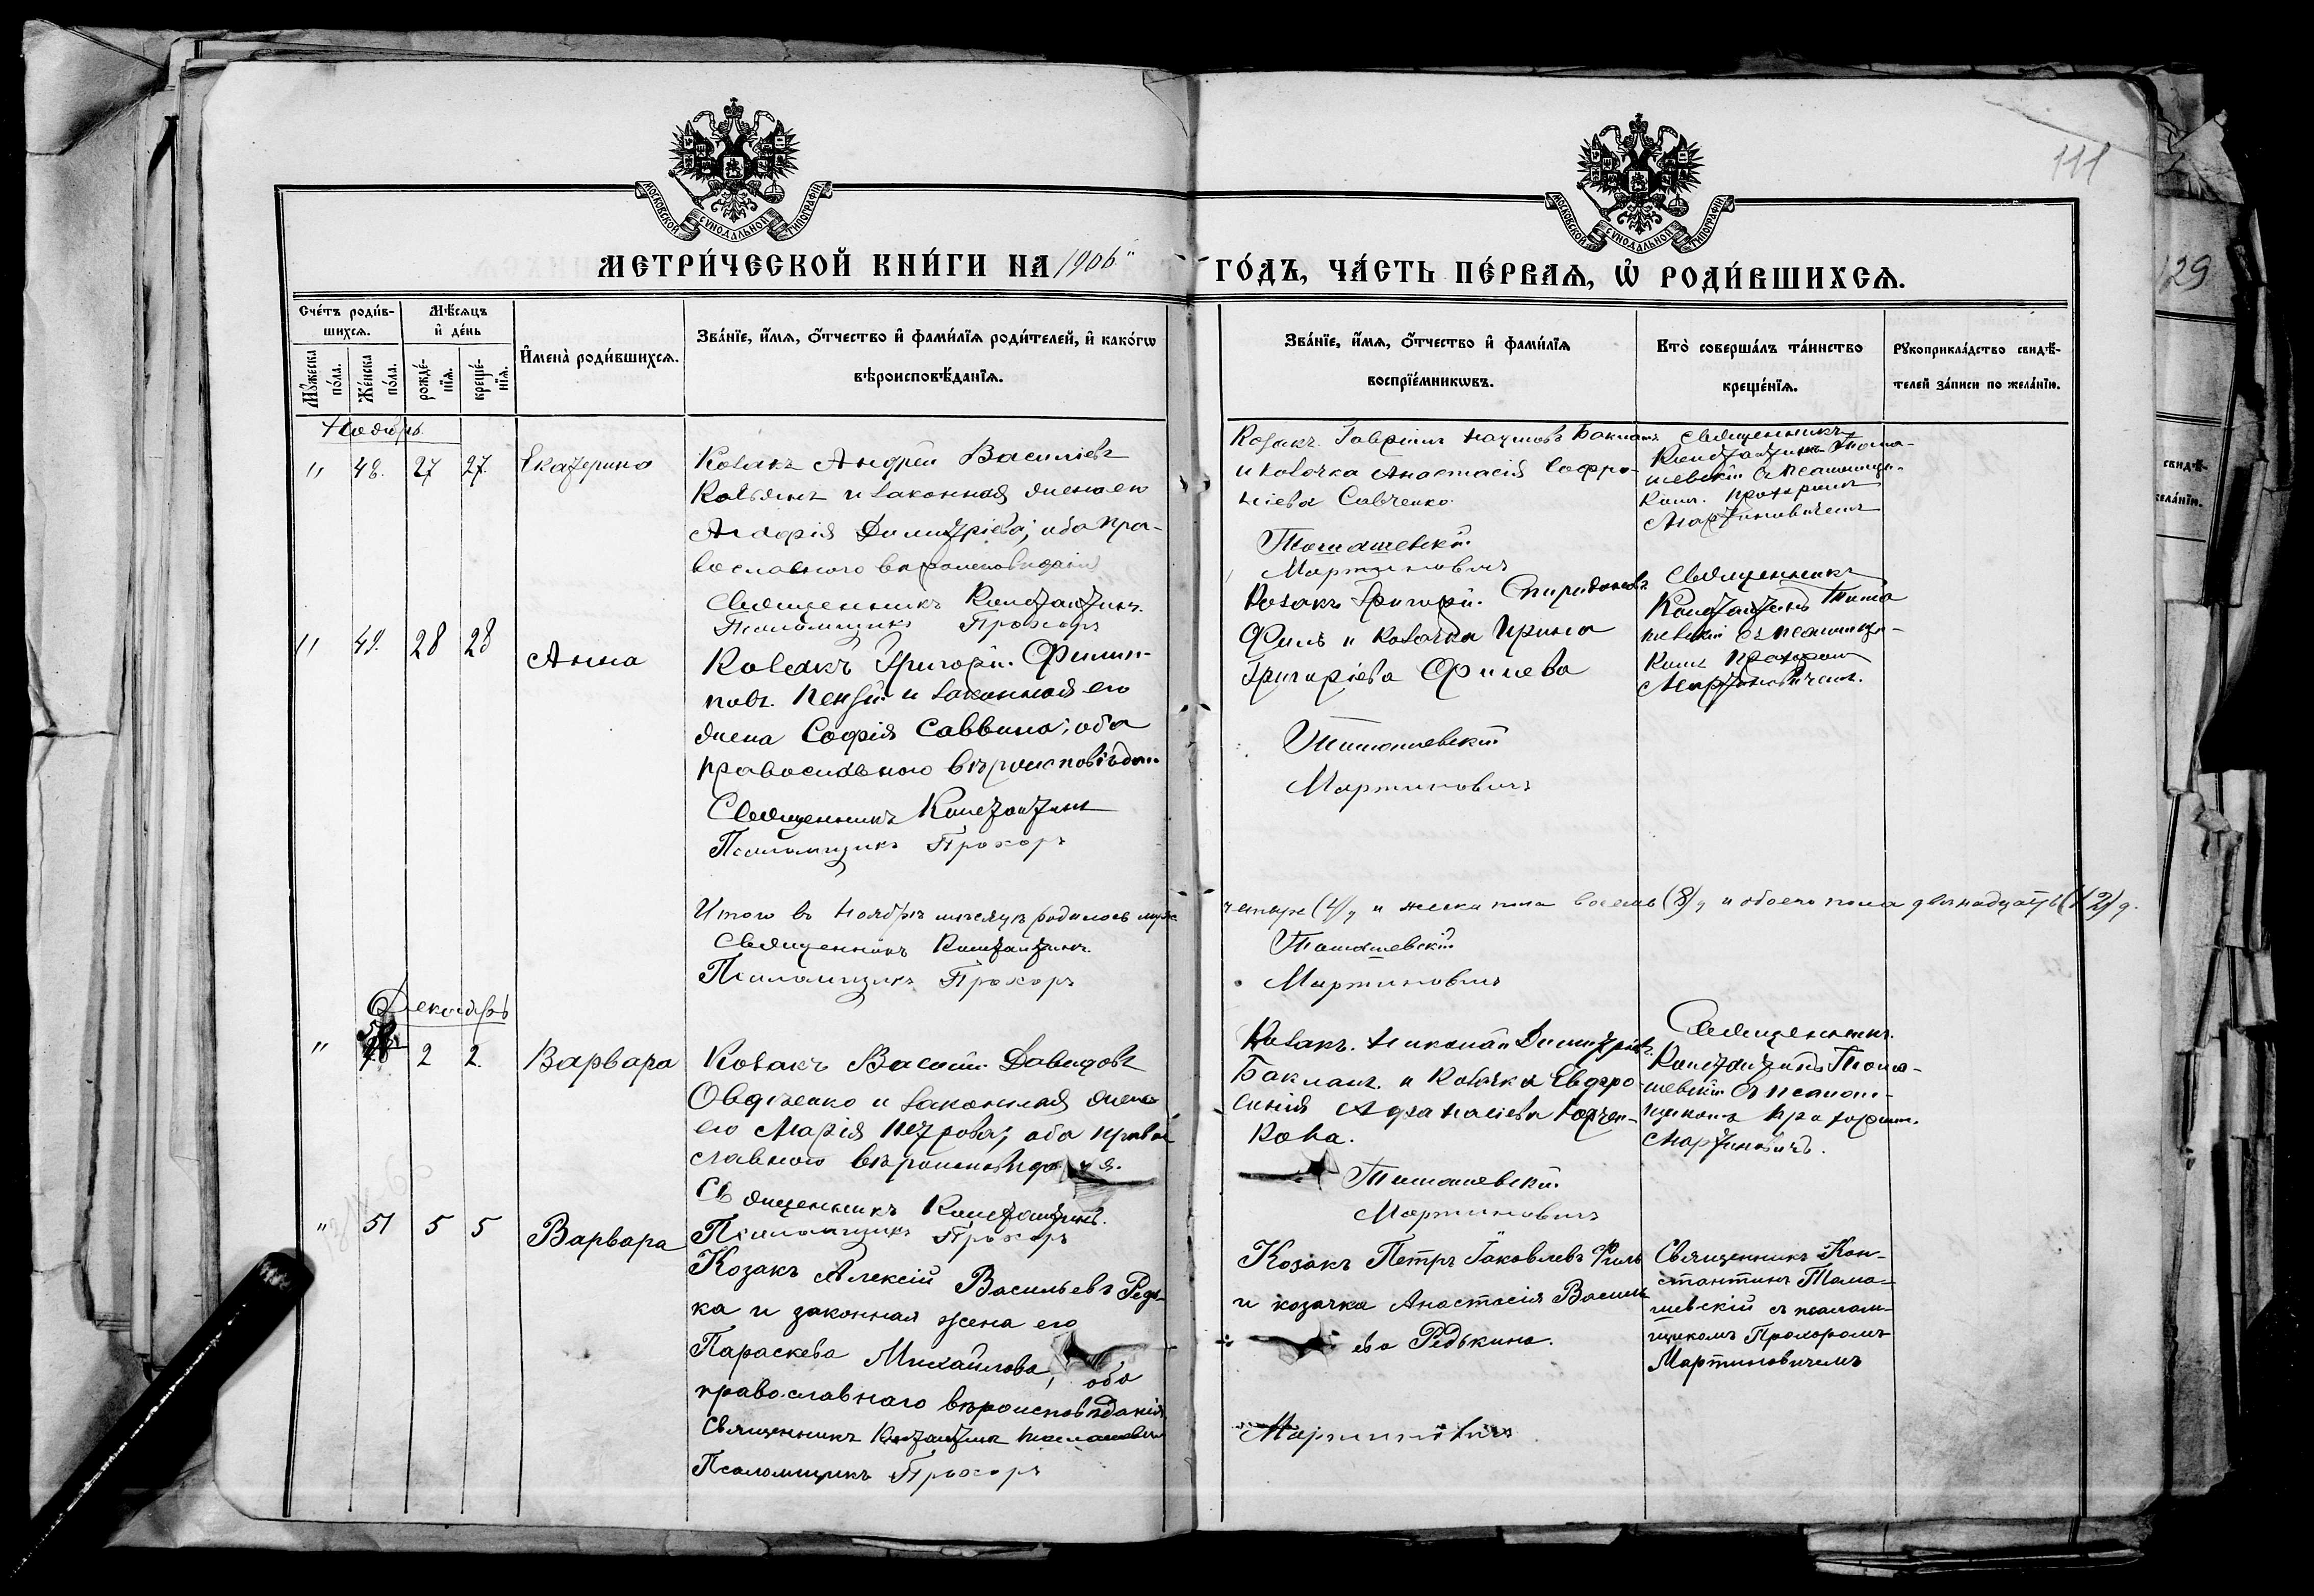 111
129
МОСКОВСКОЙ СѴНОДАЛЬНОЙ ТИПОГРАФІИ
МОСКОВСКОЙ СѴНОДАЛЬНОЙ ТИПОГРАФІИ
МЕТРИ́ЧЕСКОЙ КНИ́ГИ НА 1906
ГО́ДЪ, ЧА́СТЬ ПЕ́РВАЯ, Ѡ РОДИ́ВШИХСЯ.
Сче́тъ роди́в-
шихся.
Мѣ́сяцъ
и де́нь
Мꙋжеска
по́ла.
Же́нска
по́ла.
рожде́-
нїя.
креще́-
нїя.
Имена̀ роди́вшихся.
Зва́нїе, и́мя, о́тчество и фами́лїя роди́телей, и како́гѡ
вѣроисповѣ́данїя.
Зва́нїе, и́мя, о́тчество и фами́лїя
воспрїе́мникѡвъ.
Кто̀ соверша́лъ та́инство
креще́нїя.
Рꙋкоприкла́дство свидѣ́-
телей за́писи по жела́нїю.
Ноябрь
" 48. 27 27. Екатерина
Козакъ Андрей Василіевъ
и законная жена его
Димитріева; оба пра-
вославного вѣроисповѣданія
Священникъ Константинъ
Псаломщикъ Прохоръ
Козакъ Гавріилъ Наумовъ Бакланъ
и козачка Анастасія Софро-
ніева Савченко.
Томашевскій
Мартиновичъ
Священникъ
Константинъ Тома-
шевскій съ псаломщи-
комъ Прохоромъ
Мартиновичемъ
" 49. 28 28 Анна
Козакъ Григорій Филип-
повъ и законная его
жена Софія Саввина; оба
православного вѣроисповѣдан.
Священникъ Константинъ
Псаломщикъ Прохоръ
Козакъ Григорій Спиридоновъ
Филь и козачка Ирина
Григоріева Филева
Томашевскій
Мартиновичъ
Священникъ
Константинъ Тома
шевскій съ псаломщи-
комъ Прохоромъ
Мартиновичемъ.
Итого въ Ноябрѣ мѣсяцѣ родилось муж
четыре (4), и женска пола восемь (8), и обоего пола двѣнадцать (12) д.
Священникъ Константинъ
Томашевскій
Псаломщикъ Прохоръ
Мартиновичъ
Декабрь
" 2 2. Варвара
Козакъ Василій Давидовъ
и законная жена
его Марія Петрова; оба право
славного вѣроисповѣданія.
Священникъ Константинъ.
Псаломщикъ Прохоръ
Козакъ Николай Димитріевъ
Бакланъ и козачка Евфро-
синія Афанасіева
кова.
Томашевскій
Мартиновичъ
Священникъ
Константинъ Тома-
шевскій съ псалом-
щикомъ Прохоромъ
Мартиновичъ.
" 51 5 5 Варвара
Козакъ Алексій Васильевъ Редь-
ка и законная жена его
Параскева Михайлова, оба
православнаго вѣроисповѣданія
Священникъ Константинъ Томашевскій
Псаломщикъ Прохоръ
Козакъ Петръ Іаковлевъ Филь
и козачка Анастасія Василь
ева Редькина.
Мартиновичъ
Священникъ Кон-
стантинъ Тома-
шевскій съ псалом-
щикомъ Прохоромъ
Мартиновичемъ